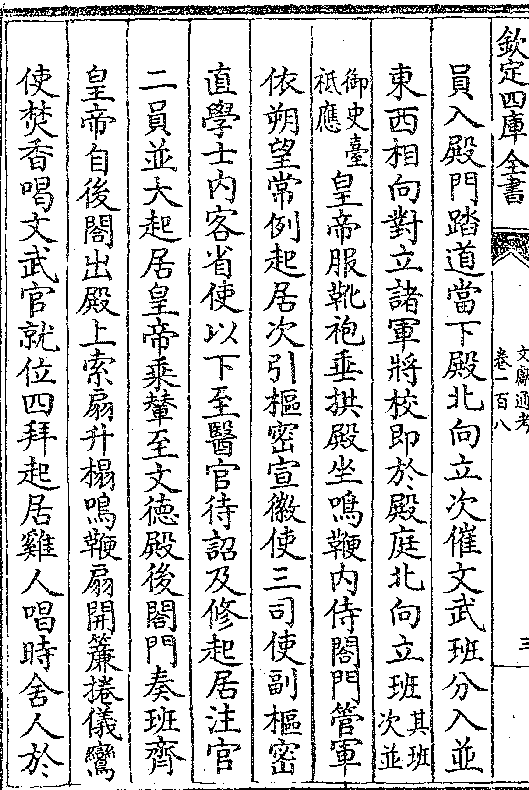 欽定四庫全書
文獻通考
卷一百八
三
員入殿門踏道當下殿北向立次催文武班分入並
東西相向對立諸軍將校即於殿庭北向立班其班次並
御史臺祗應皇帝服靴袍垂拱殿坐鳴鞭内侍閤門管軍
依朔望常例起居次引樞密宣徽使三司使副樞密
直學士内客省使以下至醫官待詔及修起居注官
二員並大起居皇帝乘輦至文德殿後閤門奏班齊
皇帝自後閤出殿上索扇升榻鳴鞭扇開簾捲儀鸞
使焚香喝文武官就位四拜起居雞人唱時舍人於